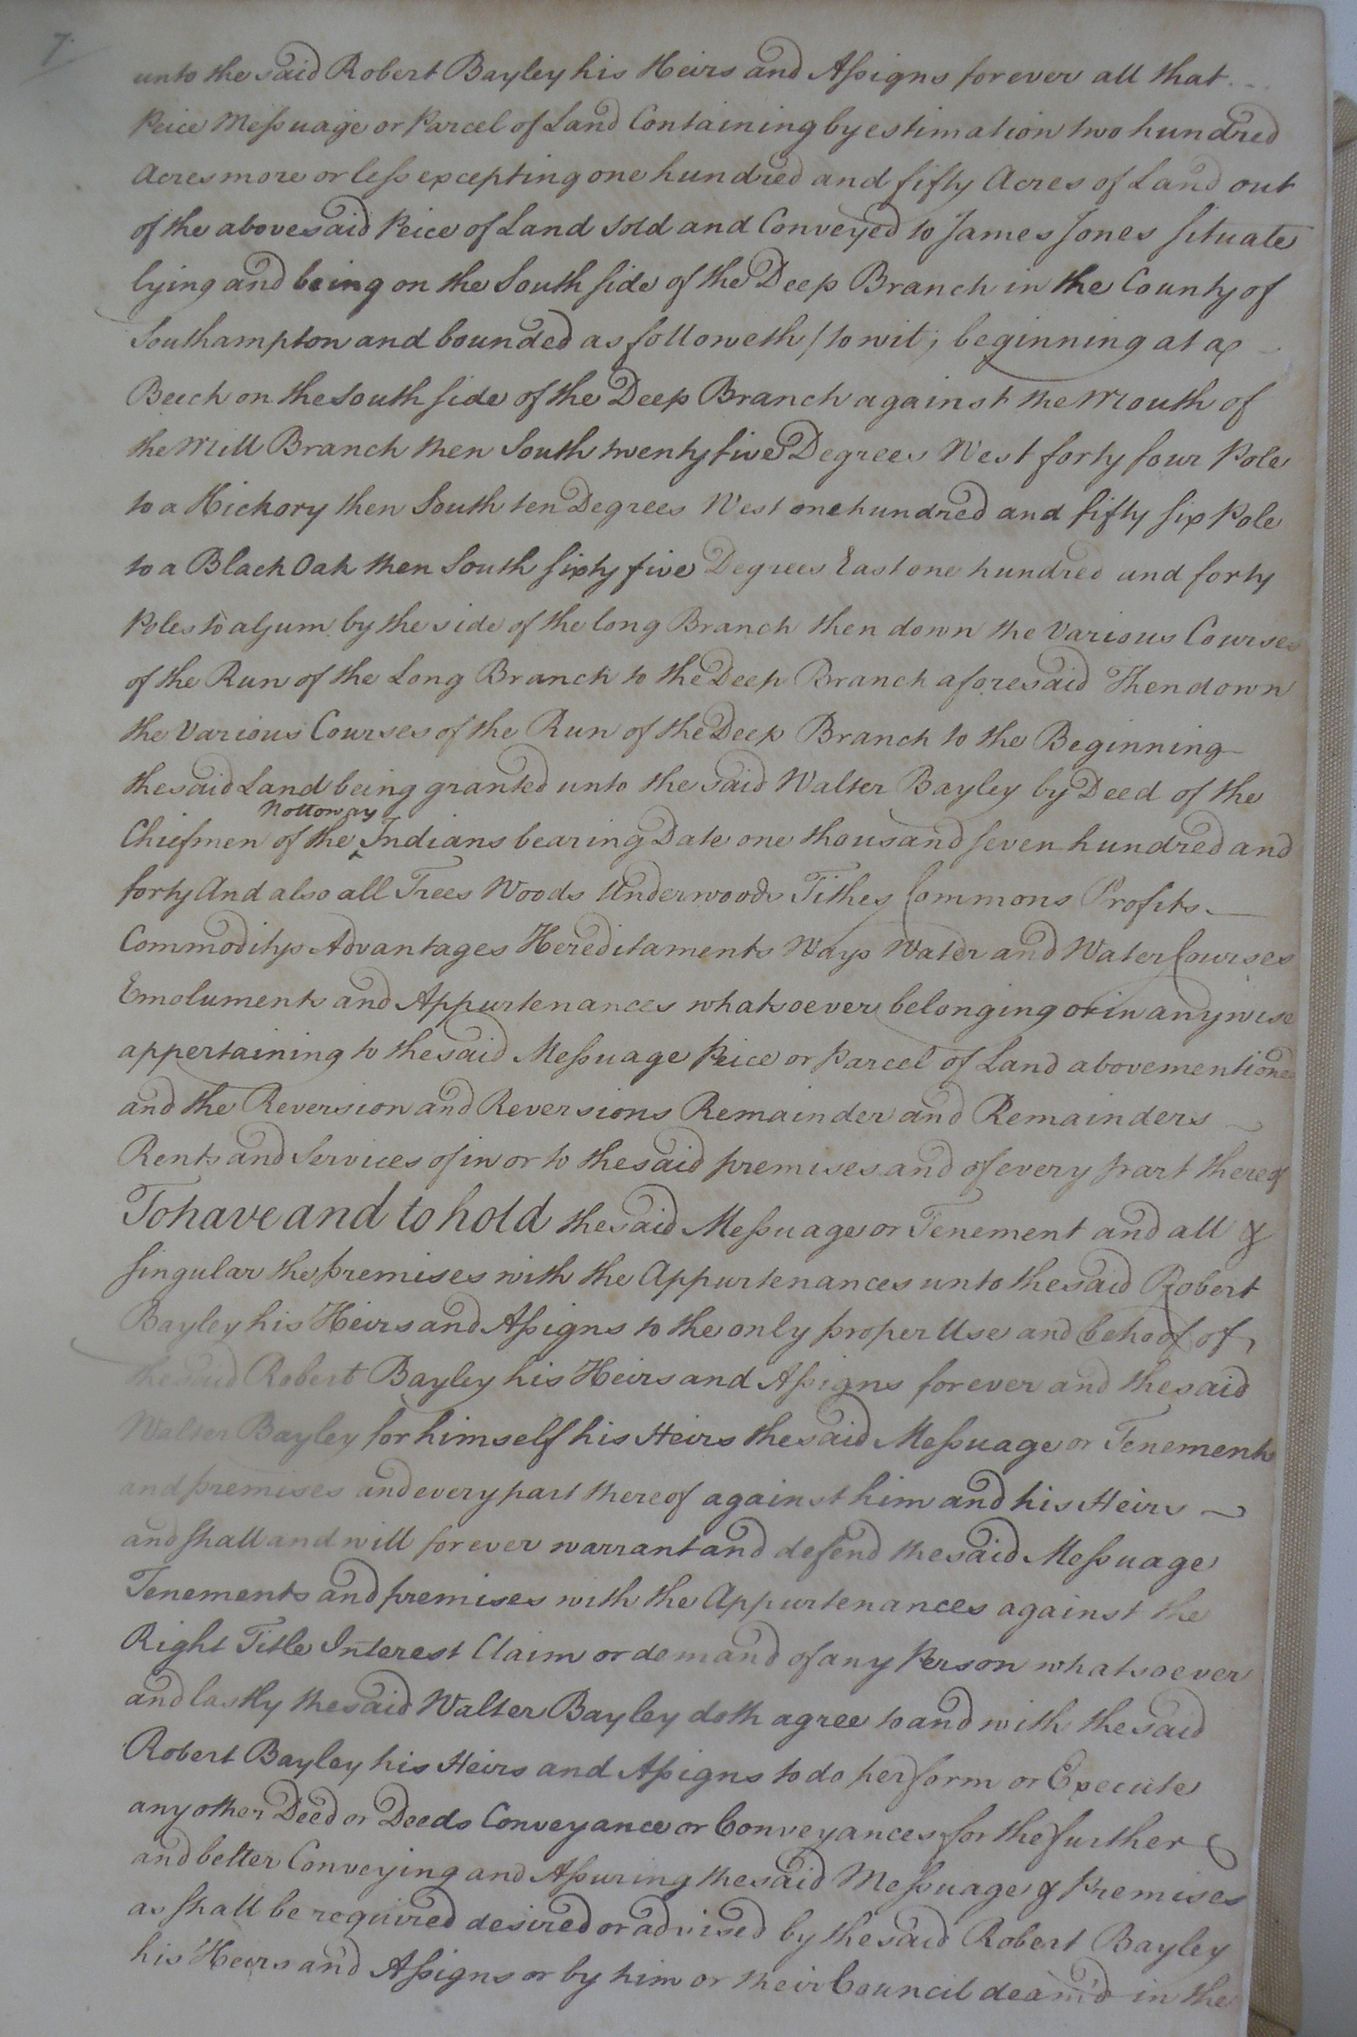 7
unto the said Robert Bayley his Heirs and Aſsigns forever all that
Peice Meſsuage or Parcel of Land Containing by estimation two hundred
Acres more or leſs excepting one hundred and fifty Acres of Land out
of the abovesaid Peice of Land Sold and Conveyed to James Jones ſituate
lying and being on the South ſide of the Deep Branch in the County of
Southampton and bounded as followeth / to wit; beginning at a
Beech on the South ſide of the Deep Branch against the Mouth of
the Mill Branch then South twenty five Degrees West forty four Pole
to a Hickory then South ten Degrees West one hundred and fifty ſix Pole
to a Black Oak then South ſixty five Degrees East one hundred and forty
Poles to a Gum by the side of the long Branch then down the Various Courses
of the Run of the Long Branch to the Deep Branch aforesaid Then down
the Various Courses of the Run of the Deep Branch to the Beginning
the said Land being granted unto the said Walter Bayley by Deed of the
Chiefmen of the Nottoway Indians bearing Date one thousand ſeven hundred and
forty And also all Trees Woods Underwoods Tithes Commons Profits
Commoditys Advantages Hereditaments Ways Water and Water Courses
Emoluments and Appurtenances whatsoever belonging or in anywise
appertaining to the said Meſsuage Peice or Parcel of Land abovementioned
and the Reversion and Reversions Remainder and Remainders
Rents and Services of in or to the said premises and of every part thereof
To have and to hold the said Meſsuage or Tenement and all &
ſingular the premises with the Appurtenances unto the said Robert
Bayley his Heirs and Aſsigns to the only proper Use and behoof of
the said Robert Bayley his Heirs and Aſsigns forever and the said
Walter Bayley for himself his Heirs the said Meſsuage or Tenements
and premises and every part thereof against him and his Heirs
and ſhall and will forever warrant and defend the said Meſsuage
Tenements and premises with the Appurtenances against the
Right Title Interest Claim or demand of any Person whatsoever
and lastly the said Walter Bayley doth agree to and with the said
Robert Bayley his Heirs and Aſsigns to do perform or Execute
any other Deed or Deeds Conveyance or Conveyances for the further
and better Conveying and Aſsuring the said Meſsuage & Premises
as ſhall be required desired or advised by the said Robert Bayley
his Heirs and Aſsigns or by him or their Council deam'd in the